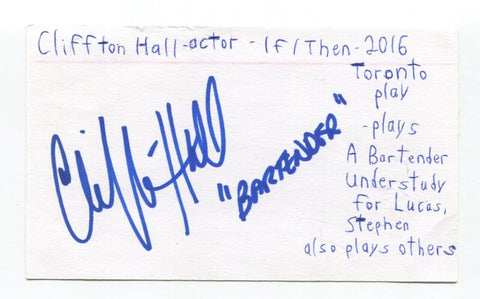 Cliffton Hall-actor - If/Then-2016
Toronto
play
-plays
A Bartender
Understudy
for Lucas,
Stephen
also plays others
Cliffton Hall
"BARTENDER"